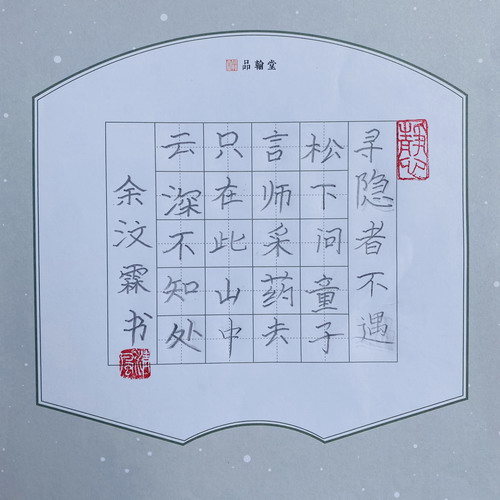 品翰堂
寻隐者不遇
松下问童子
言师采药去
只在此山中
云深不知处
余汶霖书
静心